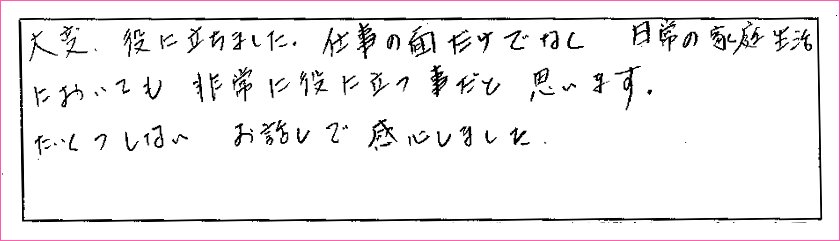 大変、役に立ちました。仕事の面だけでなく 日常の家庭生活
においても 非常に役に立つ事だと 思います。
たいくつしない お話しで 感心しました。